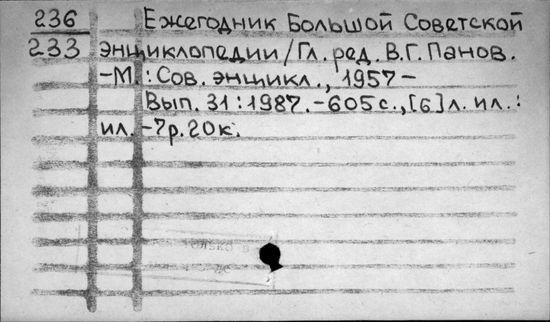 236 Ежегодник Большой Советской
233 энциклопедии/Гл. ред. В.Г. Панов.
-М.: Сов. энцикл., 1957-
Вып. 31: 1987. - 605 с., [6] л. ил.:
ил. - 7р. 20к.
только в